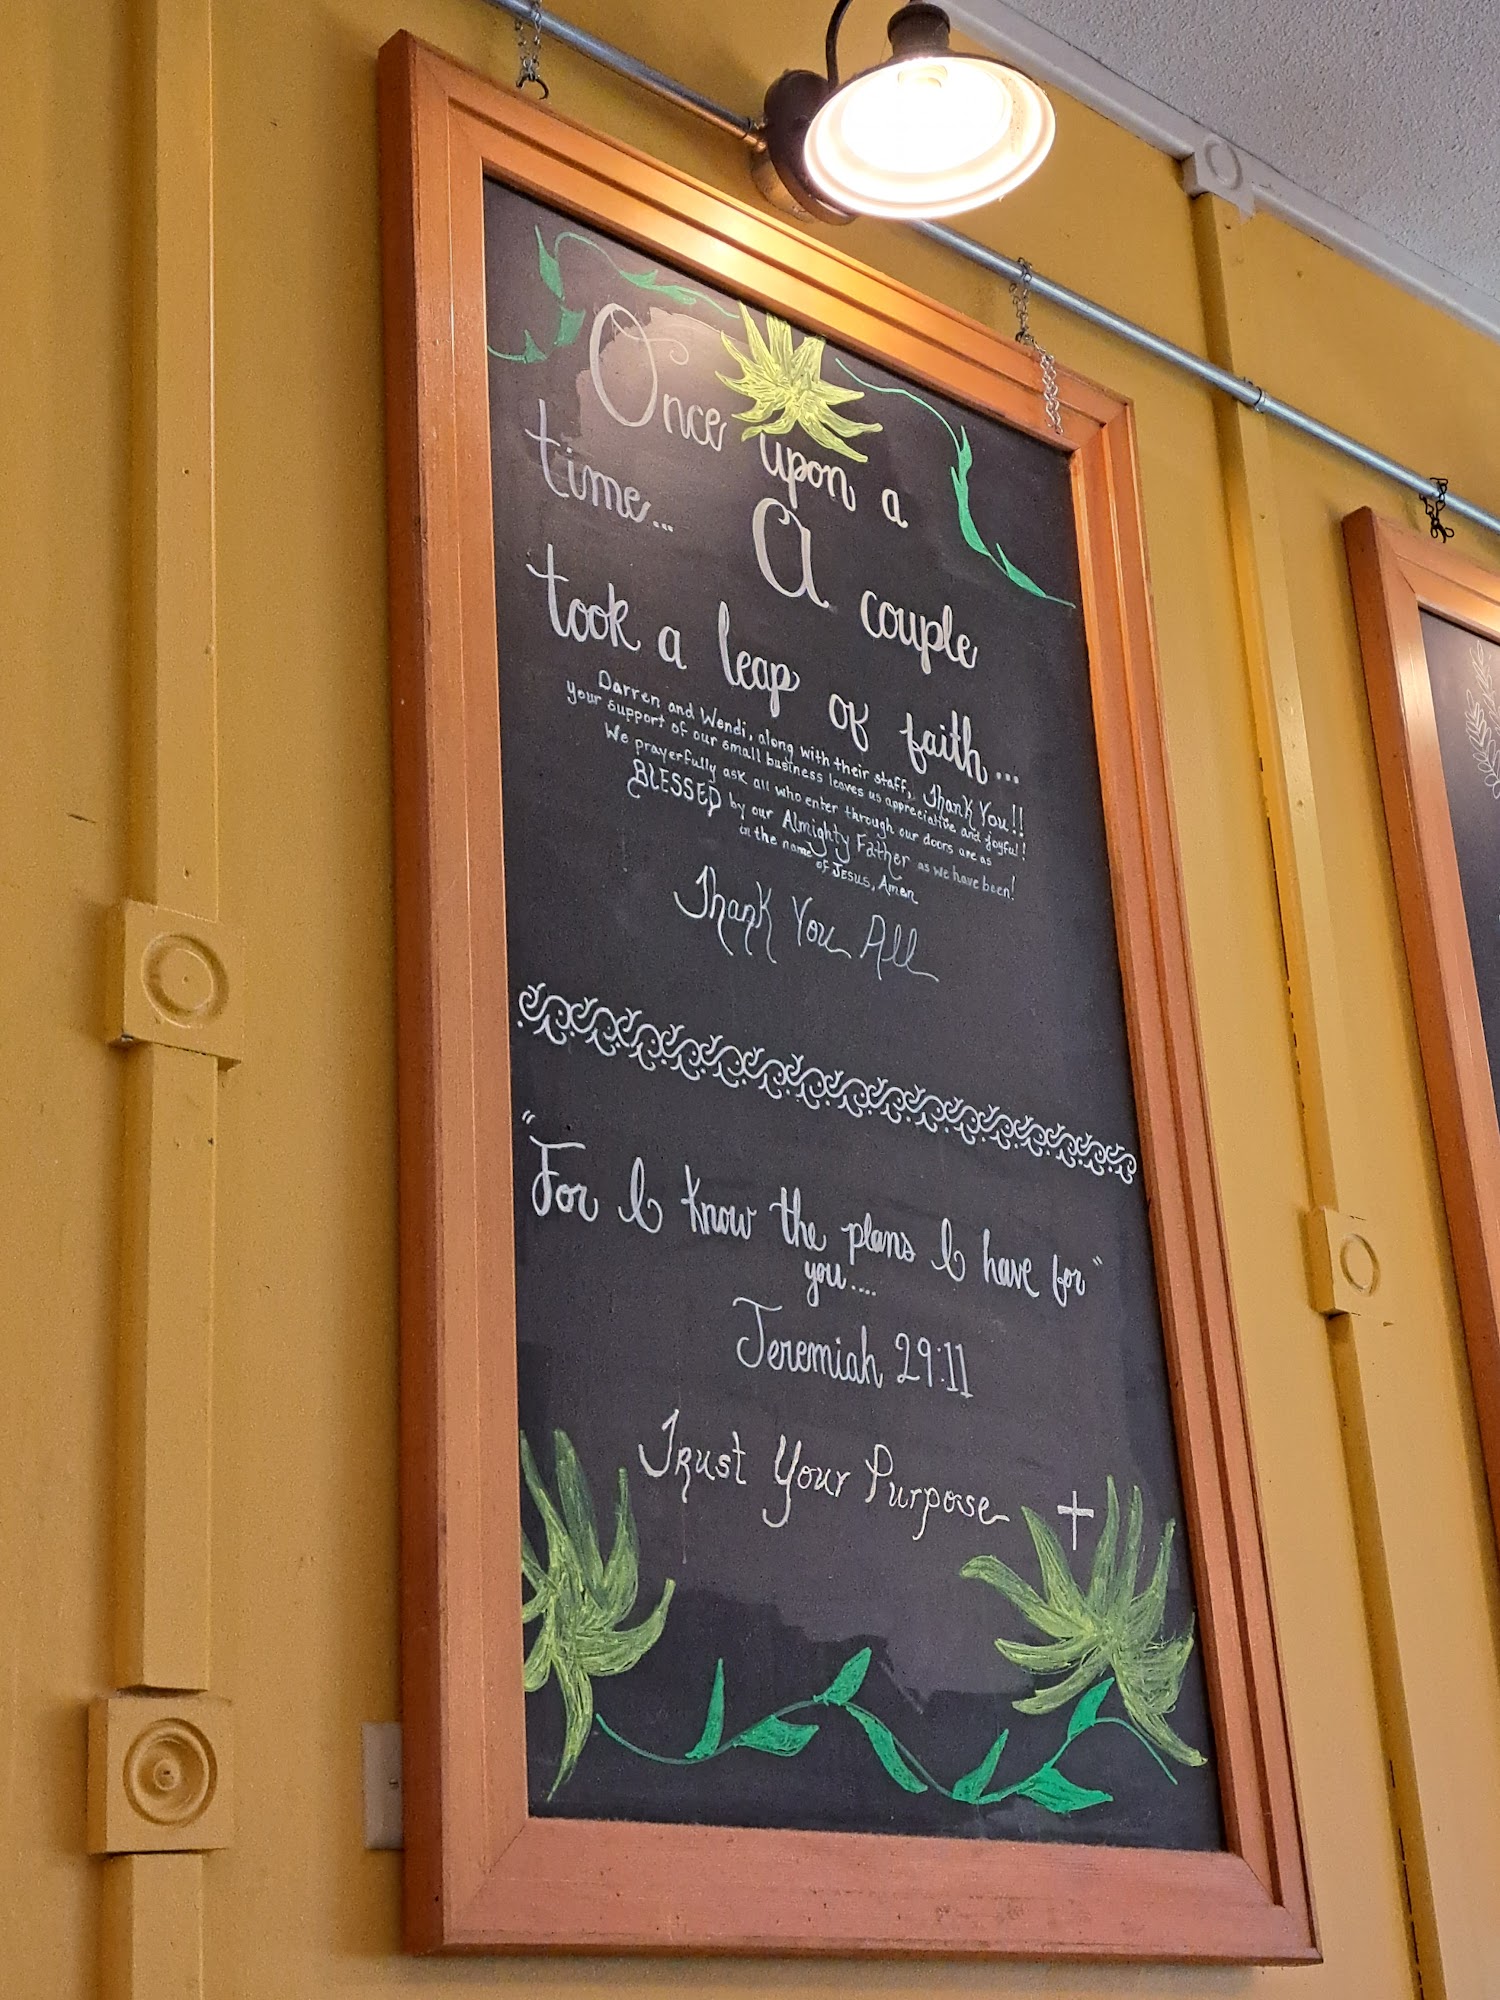 Once upon a
time...
A couple
took a leap of faith...
Darren and Wendi, along with their staff, Thank You!!
your support of our small business leaves us appreciative and joyful!
We prayerfully ask all who enter through our doors are as
BLESSED by our Almighty Father as we have been!
in the name
of JESUS, Amen
Thank You All
"For I know the plans I have for"
you....
Jeremiah 29:11
Trust Your Purpose